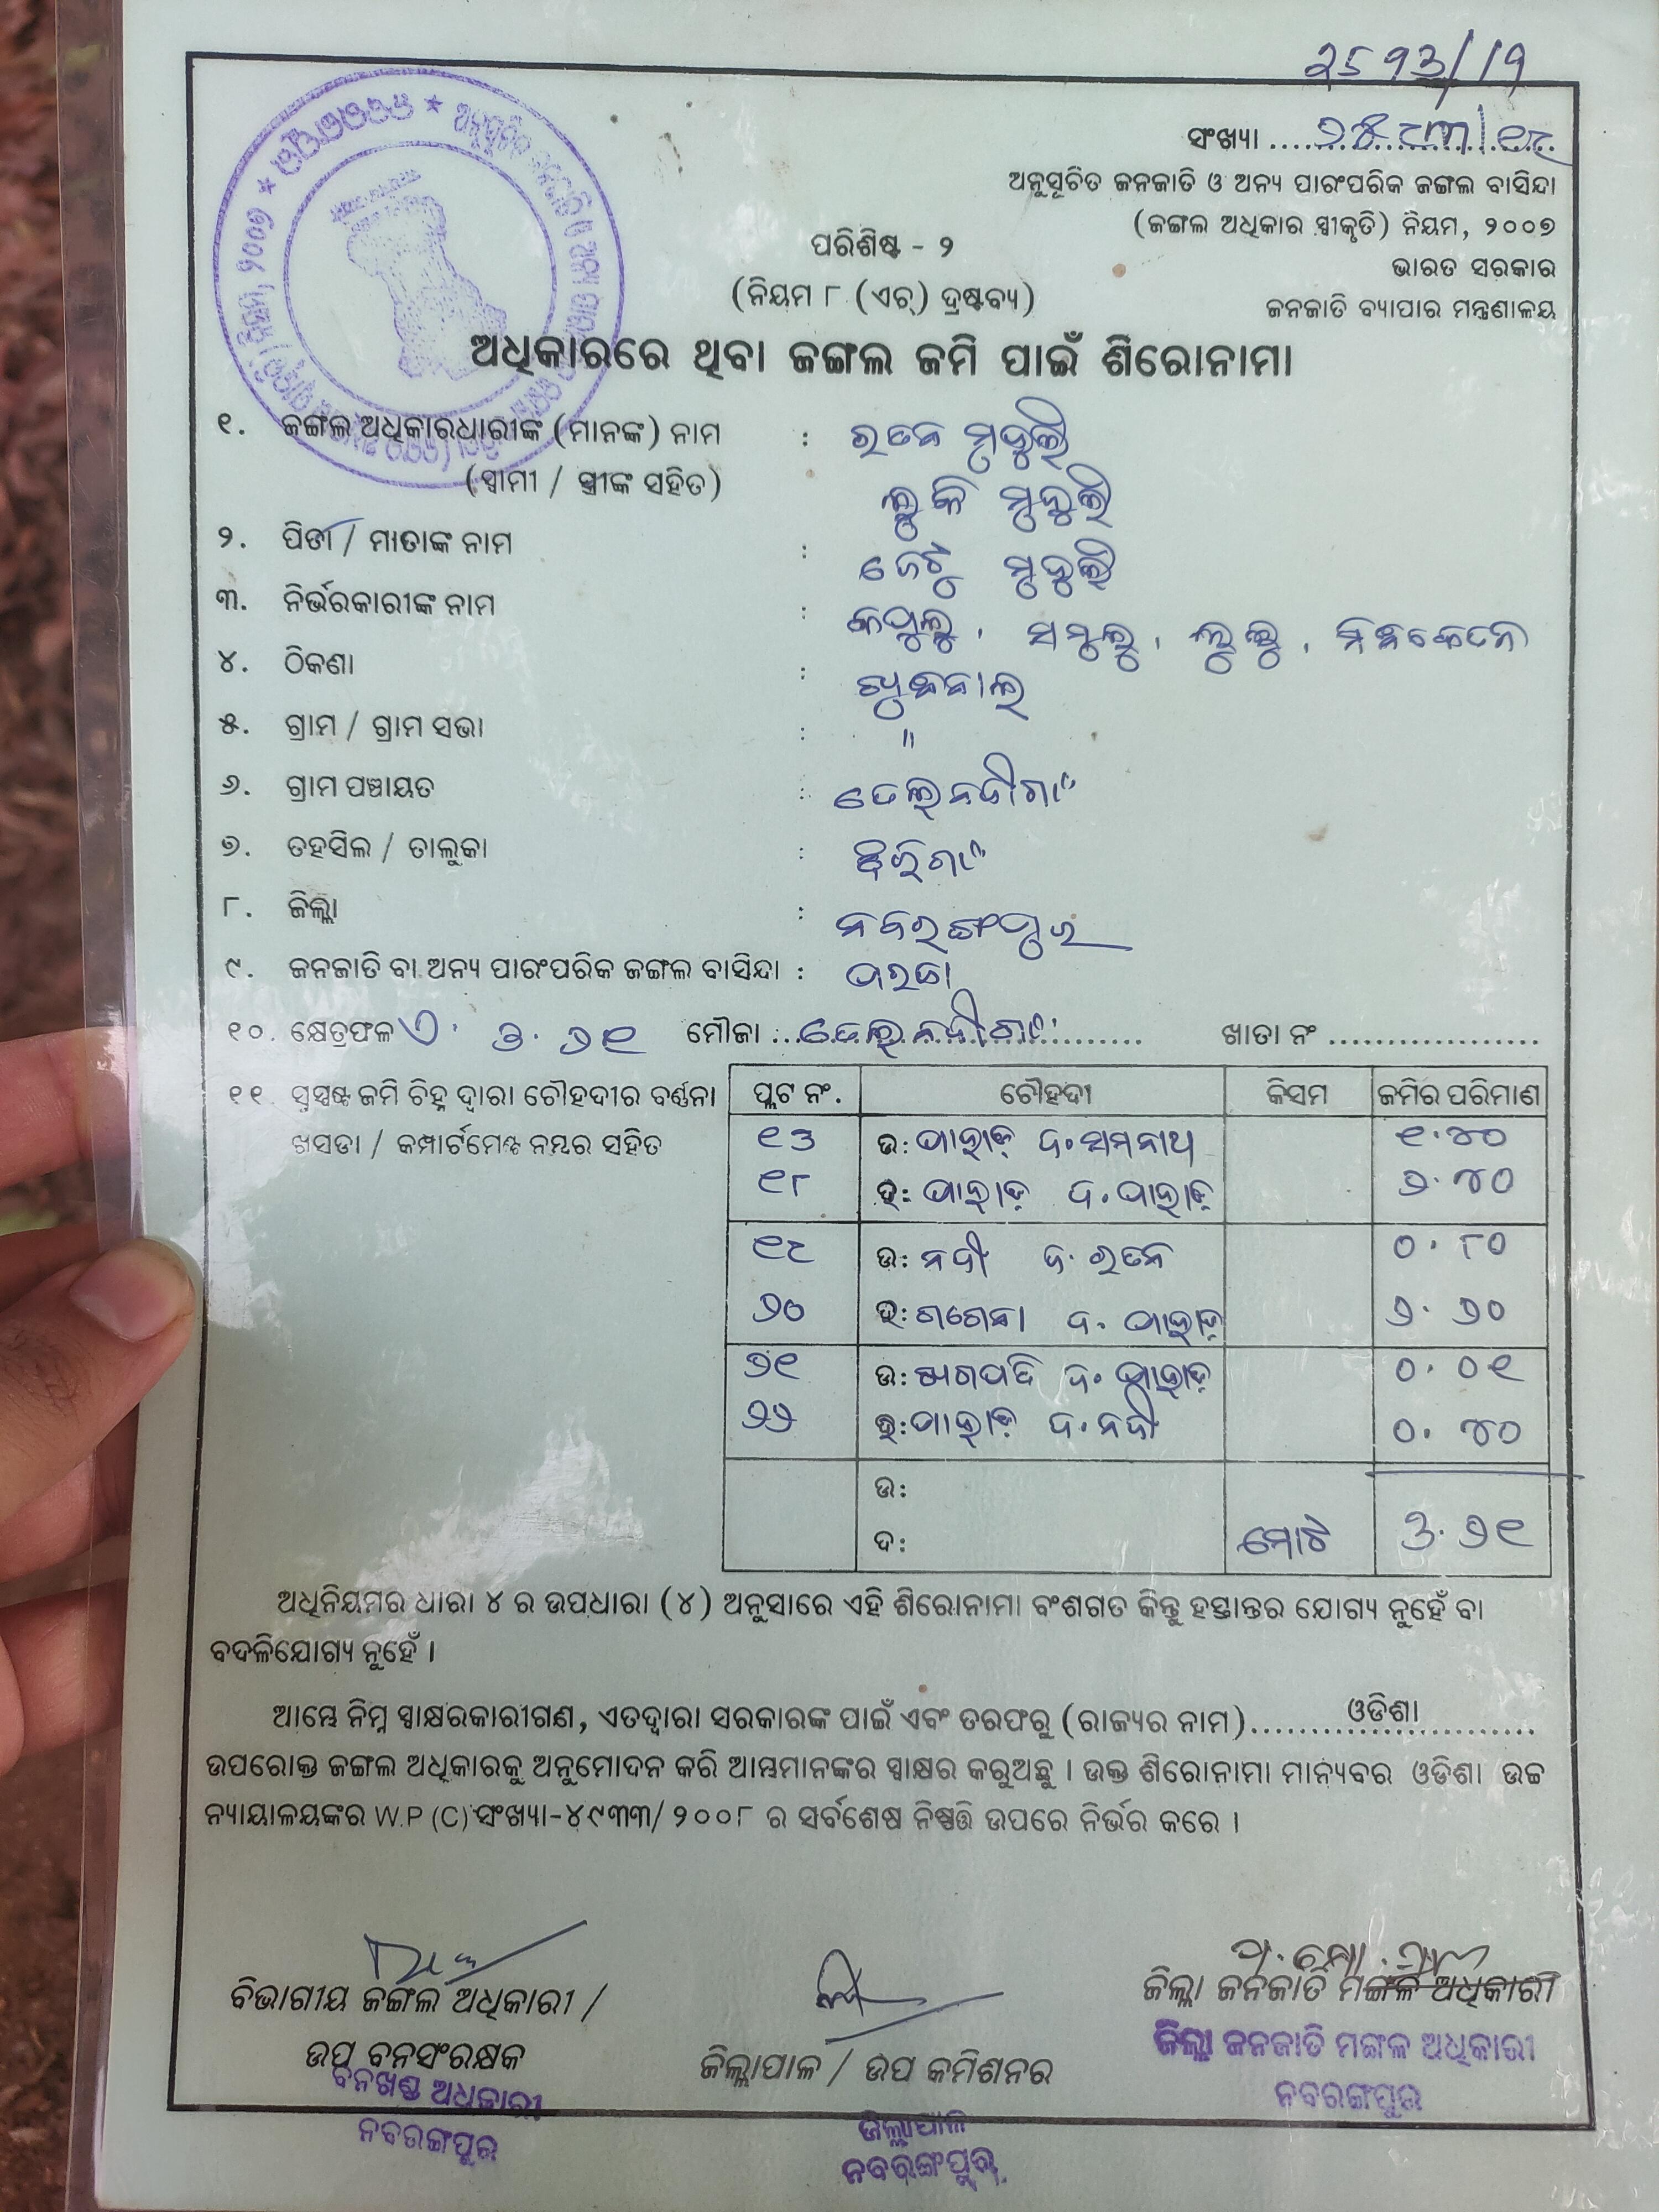 2593/19
ସଂଖ୍ୟା
ଅନୁସୂଚିତ ଜନଜାତି ଓ ଅନ୍ୟ ପାରଂପରିକ ଜଙ୍ଗଲ ବାସିନ୍ଦା
(ଜଙ୍ଗଲ ଅଧିକାର ସ୍ୱୀକୃତି) ନିୟମ, ୨୦୦୭
ପରିଶିଷ୍ଟ - ୨
ଭାରତ ସରକାର
(ନିୟମ ୮ (ଏଚ୍) ଦ୍ରଷ୍ଟବ୍ୟ)
ଜନଜାତି ବ୍ୟାପାର ମନ୍ତ୍ରଣାଳୟ
ଅଧିକାରରେ ଥିବା ଜଙ୍ଗଲ ଜମି ପାଇଁ ଶିରୋନାମା
୧. ଜଙ୍ଗଲ ଅଧିକାରଧାରୀଙ୍କ (ମାନଙ୍କ) ନାମ : ରତନ ମୁଦୁଲି
(ସ୍ୱାମୀ / ସ୍ତ୍ରୀଙ୍କ ସହିତ) ମୁଦୁଲି
୨. ପିତା / ମାତାଙ୍କ ନାମ : ମୁଦୁଲି
୩. ନିର୍ଭରକାରୀଙ୍କ ନାମ :
୪. ଠିକଣା :
୫. ଗ୍ରାମ / ଗ୍ରାମ ସଭା : "
୬. ଗ୍ରାମ ପଞ୍ଚାୟତ : ତେଲନଦୀଗାଁ
୭. ତହସିଲ / ତାଲୁକା : ଝରିଗାଁ
୮. ଜିଲ୍ଲା : ନବରଙ୍ଗପୁର
୯. ଜନଜାତି ବା ଅନ୍ୟ ପାରଂପରିକ ଜଙ୍ଗଲ ବାସିନ୍ଦା : ପରଜା
୧୦. କ୍ଷେତ୍ରଫଳ ୬.୨୧ ମୌଜା ... ତେଲନଦୀଗାଁ ... ଖାତା ନଂ ..................
୧୧. ସୁସ୍ପଷ୍ଟ ଜମି ଚିହ୍ନ ଦ୍ୱାରା ଚୌହଦୀର ବର୍ଣ୍ଣନା ପ୍ଲଟ ନଂ. ଚୌହଦୀ କିସମ ଜମିର ପରିମାଣ
ଖସଡା / କମ୍ପାର୍ଟମେଣ୍ଟ ନମ୍ବର ସହିତ ଉ: ପାହାଡ଼ ଦ: ୧.୪୦
୧୮ ଦ: ପାହାଡ଼ ଦ. ପାହାଡ଼ ୨.୪୦
୧୯ ଉ: ନଦୀ ଦ. ରତନ ୦.୮୦
୨୦ ଦ. ପାହାଡ଼ ୨.୨୦
୨୧ ଉ: ଦ. ପାହାଡ଼ ୦.୦୧
୨୨ ଦ: ପାହାଡ଼ ଦ. ନଦୀ ୦.୪୦
ଉ:
ଦ: ମୋଟ ୬.୨୧
ଅଧିନିୟମର ଧାରା ୪ ର ଉପଧାରା (୪) ଅନୁସାରେ ଏହି ଶିରୋନାମା ବଂଶଗତ କିନ୍ତୁ ହସ୍ତାନ୍ତର ଯୋଗ୍ୟ ନୁହେଁ ବା
ବଦଳିଯୋଗ୍ୟ ନୁହେଁ ।
ଆମ୍ଭେ ନିମ୍ନ ସ୍ୱାକ୍ଷରକାରୀଗଣ, ଏତଦ୍ୱାରା ସରକାରଙ୍କ ପାଇଁ ଏବଂ ତରଫରୁ (ରାଜ୍ୟର ନାମ)..........ଓଡିଶା..........
ଉପରୋକ୍ତ ଜଙ୍ଗଲ ଅଧିକାରକୁ ଅନୁମୋଦନ କରି ଆମ୍ଭମାନଙ୍କର ସ୍ୱାକ୍ଷର କରୁଅଛୁ । ଉକ୍ତ ଶିରୋନାମା ମାନ୍ୟବର ଓଡିଶା ଉଚ୍ଚ
ନ୍ୟାୟାଳୟଙ୍କର W.P (C) ସଂଖ୍ୟା-୪୯୩୩/୨୦୦୮ ର ସର୍ବଶେଷ ନିଷ୍ପତ୍ତି ଉପରେ ନିର୍ଭର କରେ ।
ବିଭାଗୀୟ ଜଙ୍ଗଲ ଅଧିକାରୀ /
ଉପ ବନସଂରକ୍ଷକ
ବନଖଣ୍ଡ ଅଧିକାରୀ
ନବରଙ୍ଗପୁର
ଜିଲ୍ଲାପାଳ / ଉପ କମିଶନର
ଜିଲ୍ଲାପାଳ
ନବରଙ୍ଗପୁର
ଜିଲ୍ଲା ଜନଜାତି ମଙ୍ଗଳ ଅଧିକାରୀ
ଜିଲ୍ଲା ଜନଜାତି ମଙ୍ଗଳ ଅଧିକାରୀ
ନବରଙ୍ଗପୁର